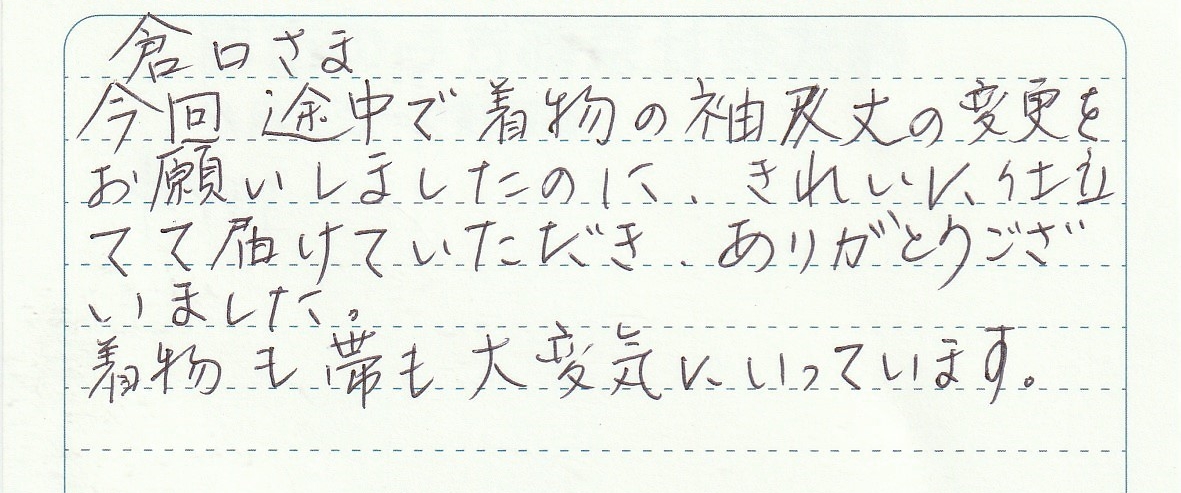 倉口さま
今回 途中で着物の袖及丈の変更を
お願いしましたのに、きれいに仕立
てて届けていただき、ありがとうござ
いました。
着物も帯も大変気にいっています。